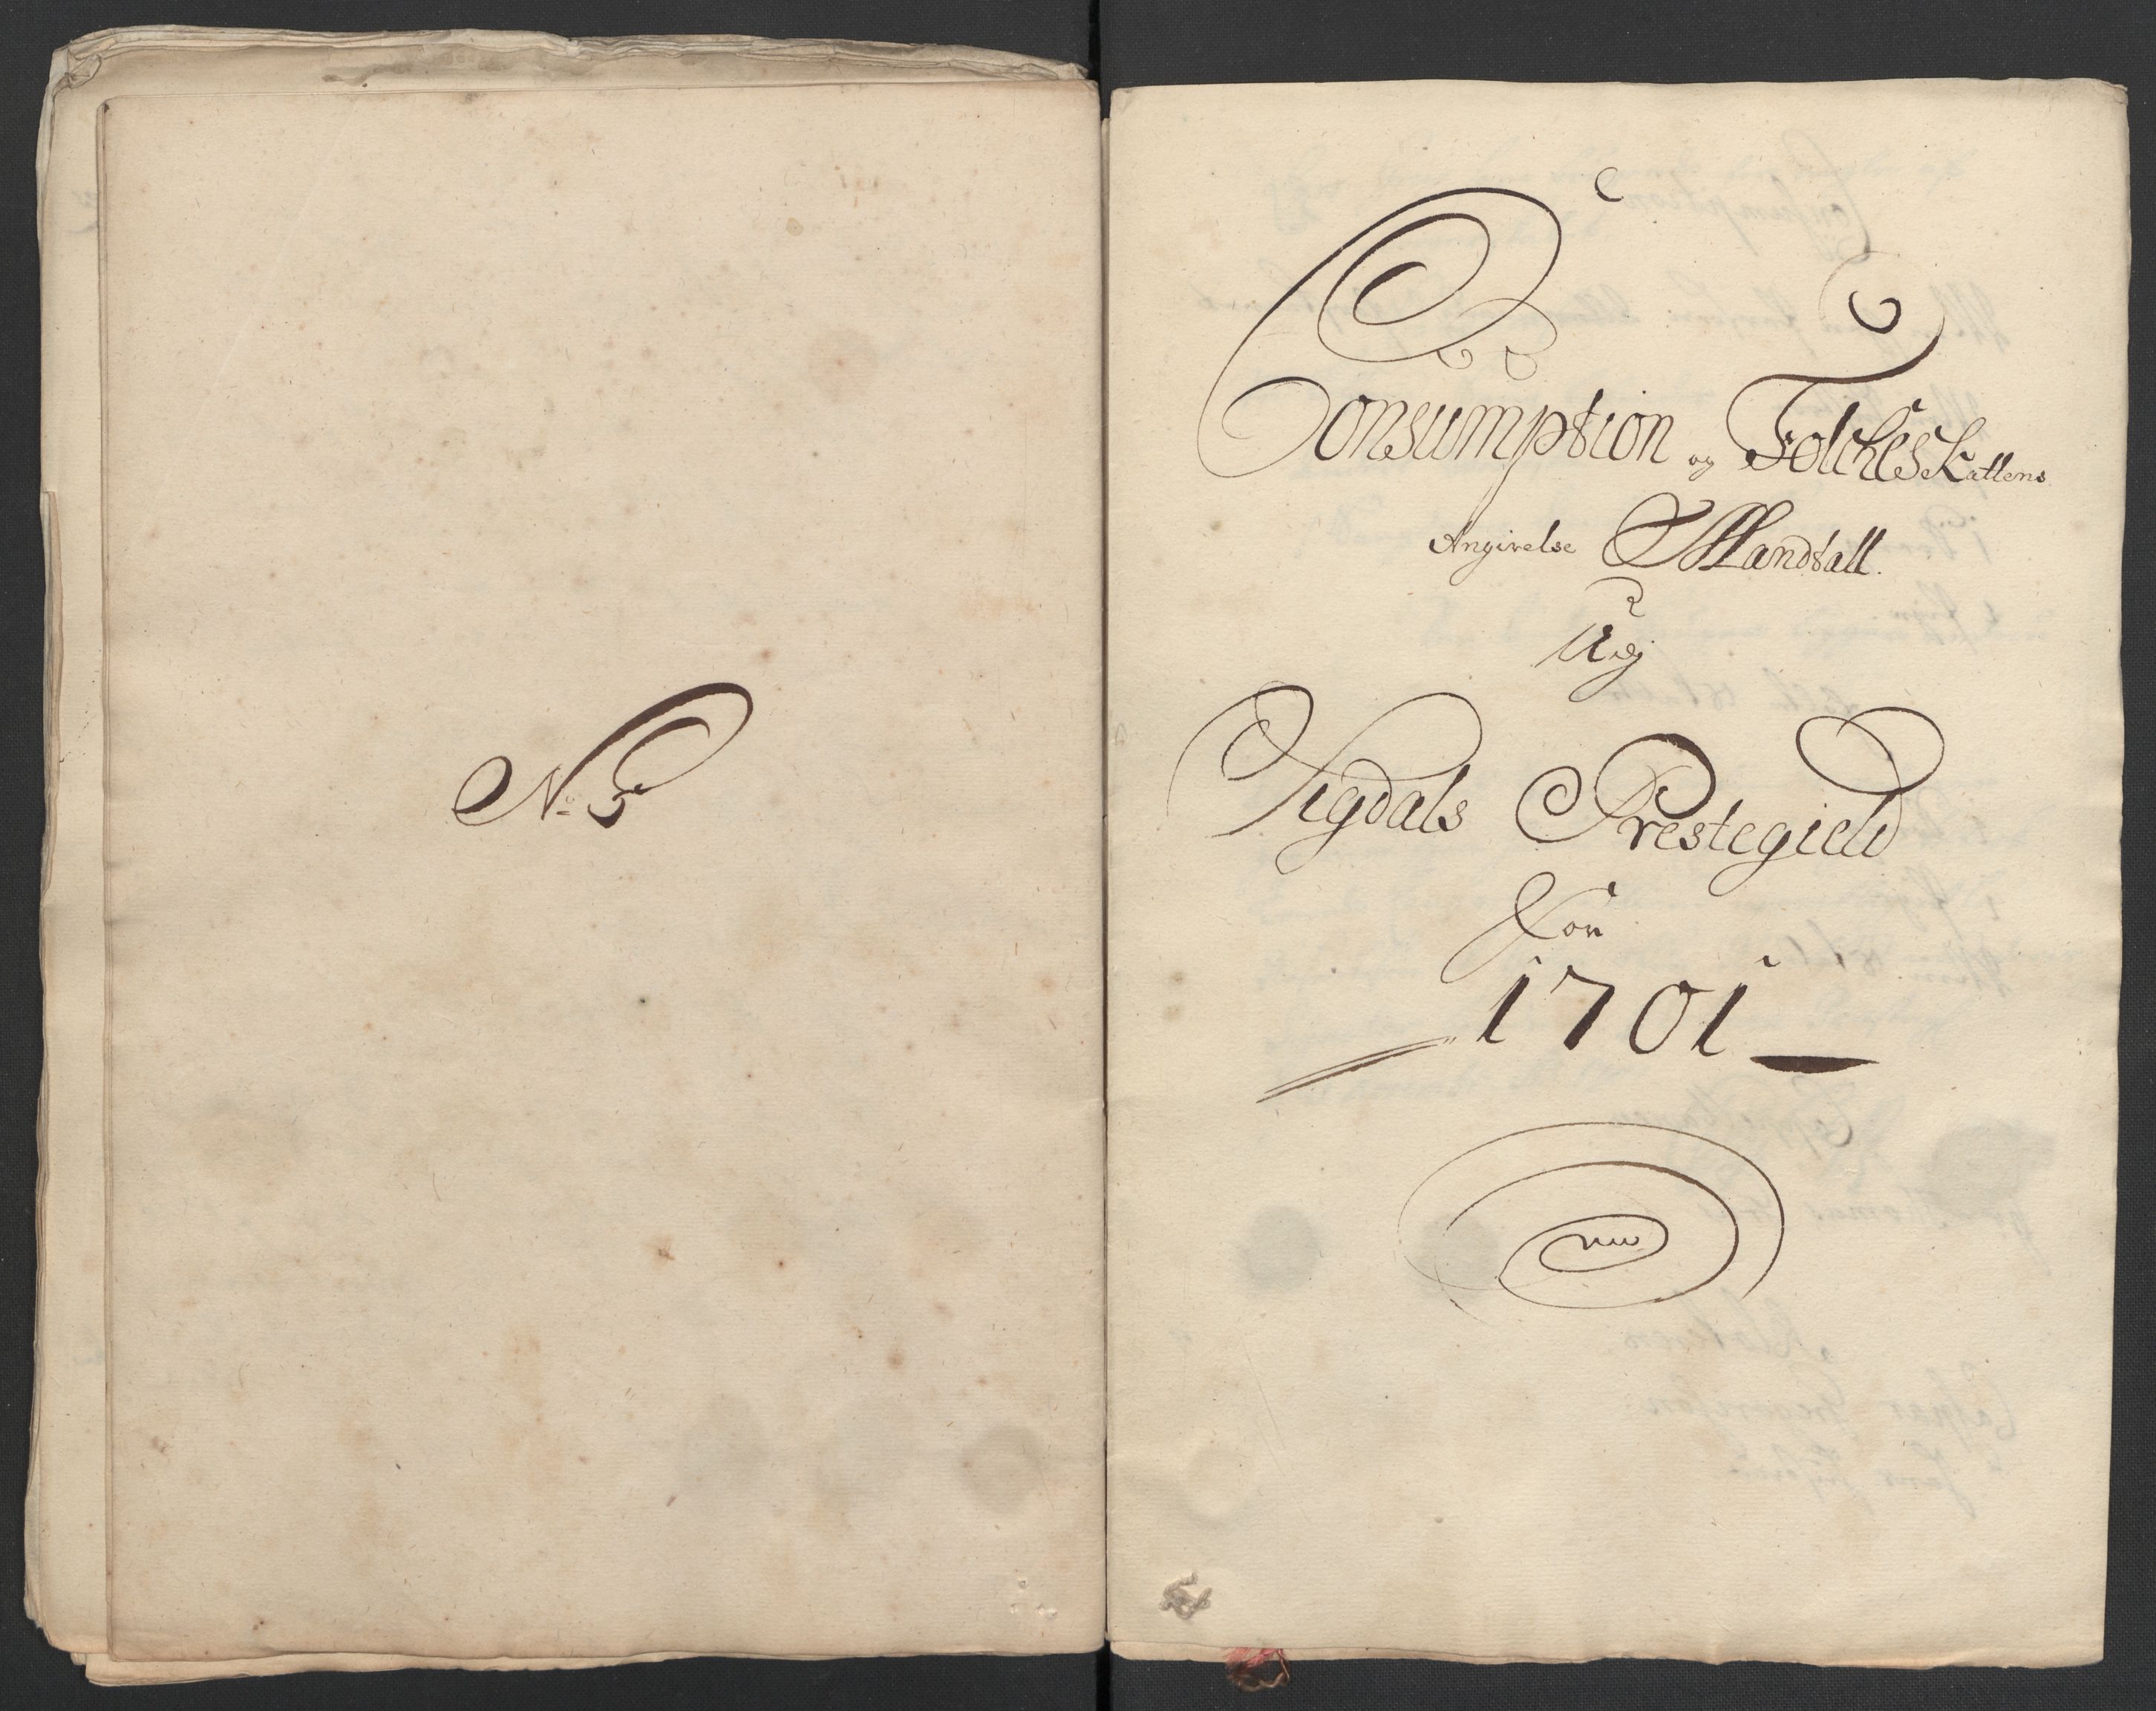 No 5
Consumption og FolcheSkattens
Angivelse Mandtall.
Udj
Sigdals Prestegield
For
1701